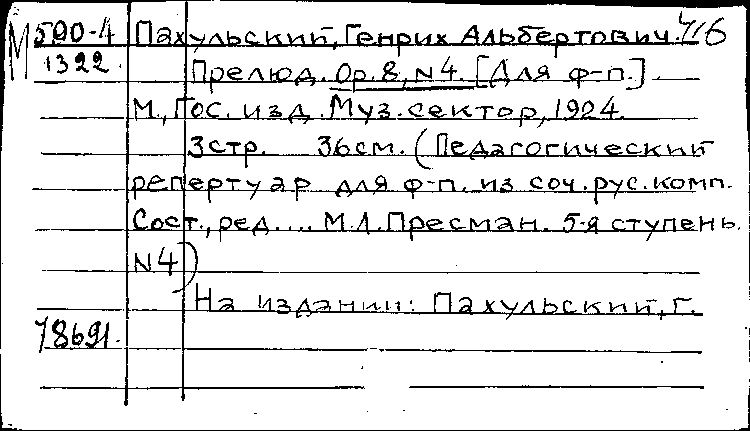 М 590-4 Пахульский, Генрих Альбертович. 416
1322. Прелюд. Op. 8, N 4. [Для ф-п.]
М., Гос. изд. Муз. сектор, 1924.
3 стр. 36 см. (Педагогический
репертуар для ф-п. из соч. рус. комп.
Сост., ред. ... М.Л. Пресман. 5-я ступень.
N 4)
На издании: Пахульский, Г.
78691.